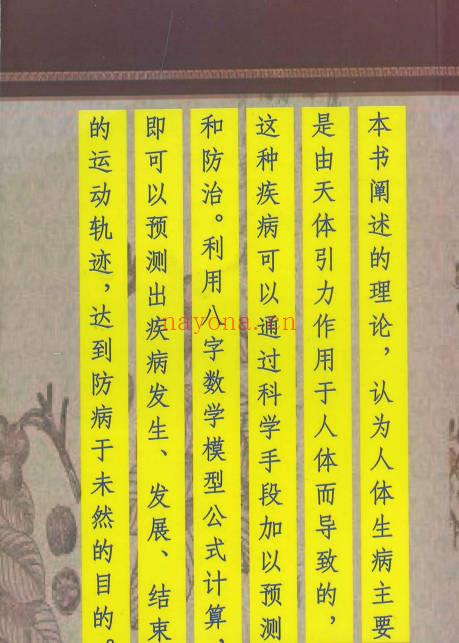 本书阐述的理论，认为人体生病主要
是由天体引力作用于人体而导致的，
这种疾病可以通过科学手段加以预测
和防治。利用八字数学模型公式计算，
即可以预测出疾病发生、发展、结束
的运动轨迹，达到防病于未然的目的。
nayona.cn